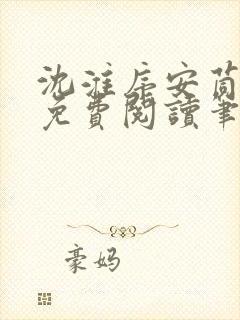 沈淮序安茴
免費閱讀筆
豪妈